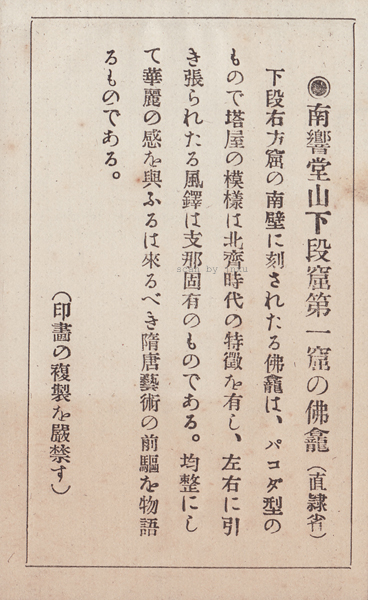 ◉南響堂山下段窟第一窟の佛龕(直隷省)
下段右方窟の南壁に刻されたる佛龕は、パコダ型の
もので塔屋の模樣は北齊時代の特徵を有し、左右に引
き張られたる風鐸は支那固有のものである。均整にし
て華麗の感を與ふるは來るべき隋唐藝術の前驅を物語
るものである。
(印畫の複製を嚴禁す)